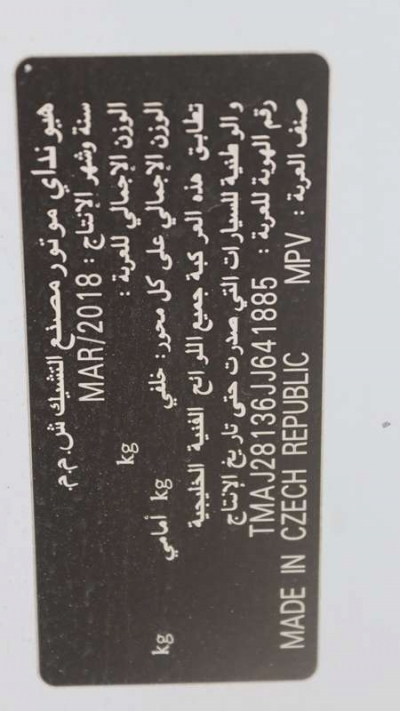 هيونداي موتور مصنع التشيك ش.م.م.
سنة وشهر الإنتاج : MAR/2018
الوزن الإجمالي للعربة : kg
الوزن الإجمالي على كل محور: خلفي kg أمامي kg
تطابق هذه المركبة جميع اللوائح الفنية الخليجية
والوطنية للسيارات التي صدرت حتى تاريخ الإنتاج
رقم الهوية للعربة : TMAJ28136JJ641885
صنف العربة : MPV MADE IN CZECH REPUBLIC